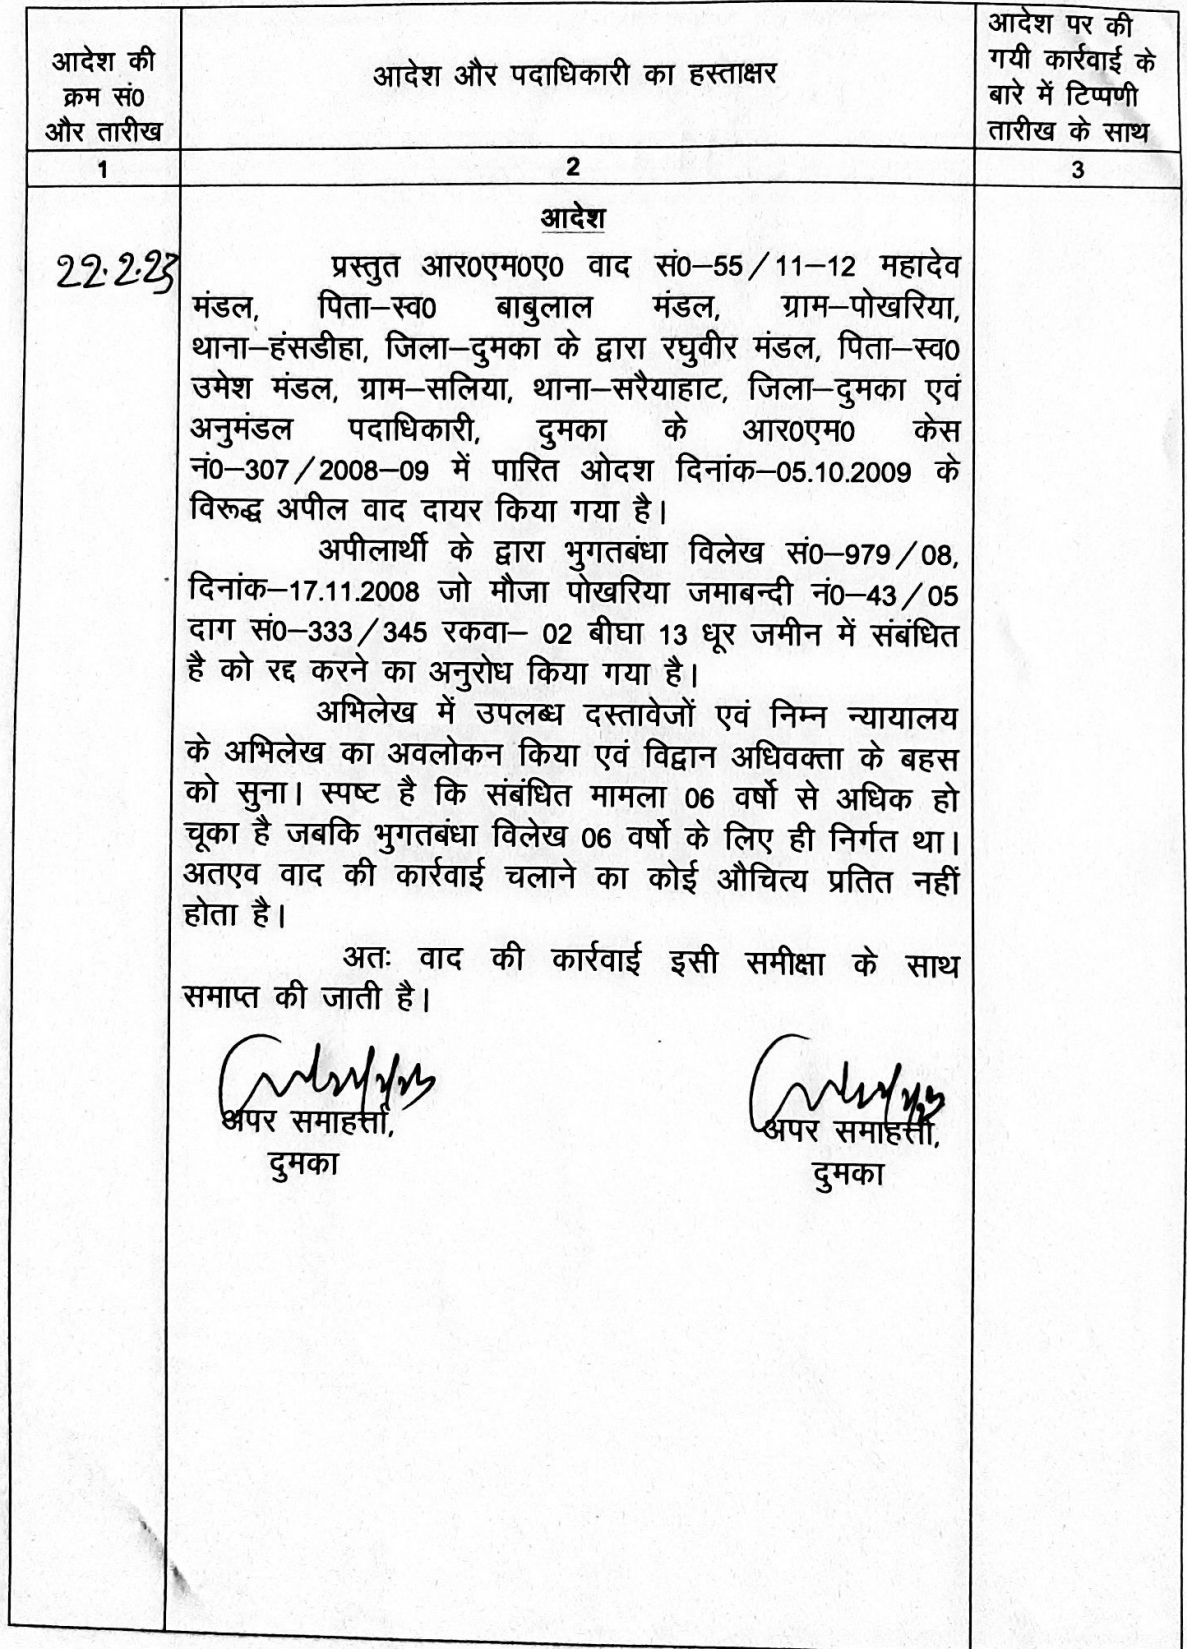 आदेश की
क्रम सं0
और तारीख
आदेश और पदाधिकारी का हस्ताक्षर
आदेश पर की
गयी कार्रवाई के
बारे में टिप्पणी
तारीख के साथ
1
2
3
आदेश
22.2.23
प्रस्तुत आर0एम0ए0 वाद सं0–55/11–12 महादेव
मंडल, पिता–स्व0 बाबुलाल मंडल, ग्राम–पोखरिया,
थाना–हंसडीहा, जिला–दुमका के द्वारा रघुवीर मंडल, पिता–स्व0
उमेश मंडल, ग्राम–सलिया, थाना–सरैयाहाट, जिला–दुमका एवं
अनुमंडल पदाधिकारी, दुमका के आर0एम0 केस
नं0–307/2008–09 में पारित ओदश दिनांक–05.10.2009 के
विरूद्ध अपील वाद दायर किया गया है।
अपीलार्थी के द्वारा भुगतबंधा विलेख सं0–979/08,
दिनांक–17.11.2008 जो मौजा पोखरिया जमाबन्दी नं0–43/05
दाग सं0–333/345 रकवा– 02 बीघा 13 धूर जमीन में संबंधित
है को रद्द करने का अनुरोध किया गया है।
अभिलेख में उपलब्ध दस्तावेजों एवं निम्न न्यायालय
के अभिलेख का अवलोकन किया एवं विद्वान अधिवक्ता के बहस
को सुना। स्पष्ट है कि संबंधित मामला 06 वर्षो से अधिक हो
चूका है जबकि भुगतबंधा विलेख 06 वर्षो के लिए ही निर्गत था।
अतएव वाद की कार्रवाई चलाने का कोई औचित्य प्रतित नहीं
होता है।
अतः वाद की कार्रवाई इसी समीक्षा के साथ
समाप्त की जाती है।
अपर समाहर्त्ता,
दुमका
अपर समाहर्त्ता,
दुमका